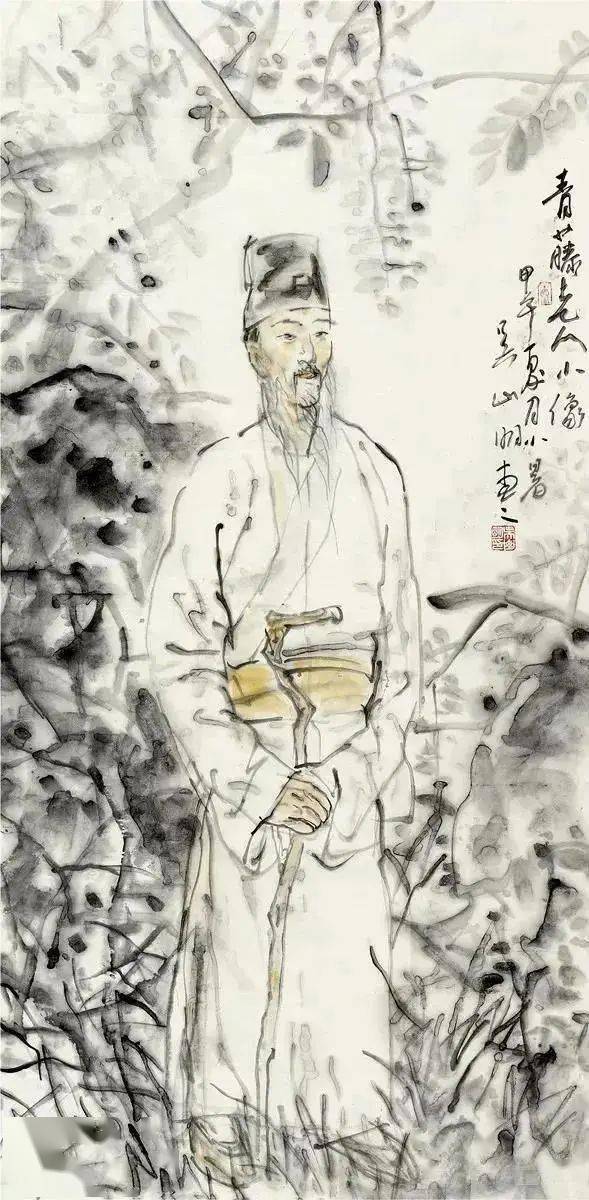 青藤老人小像
甲午夏月小暑
吴山明画之